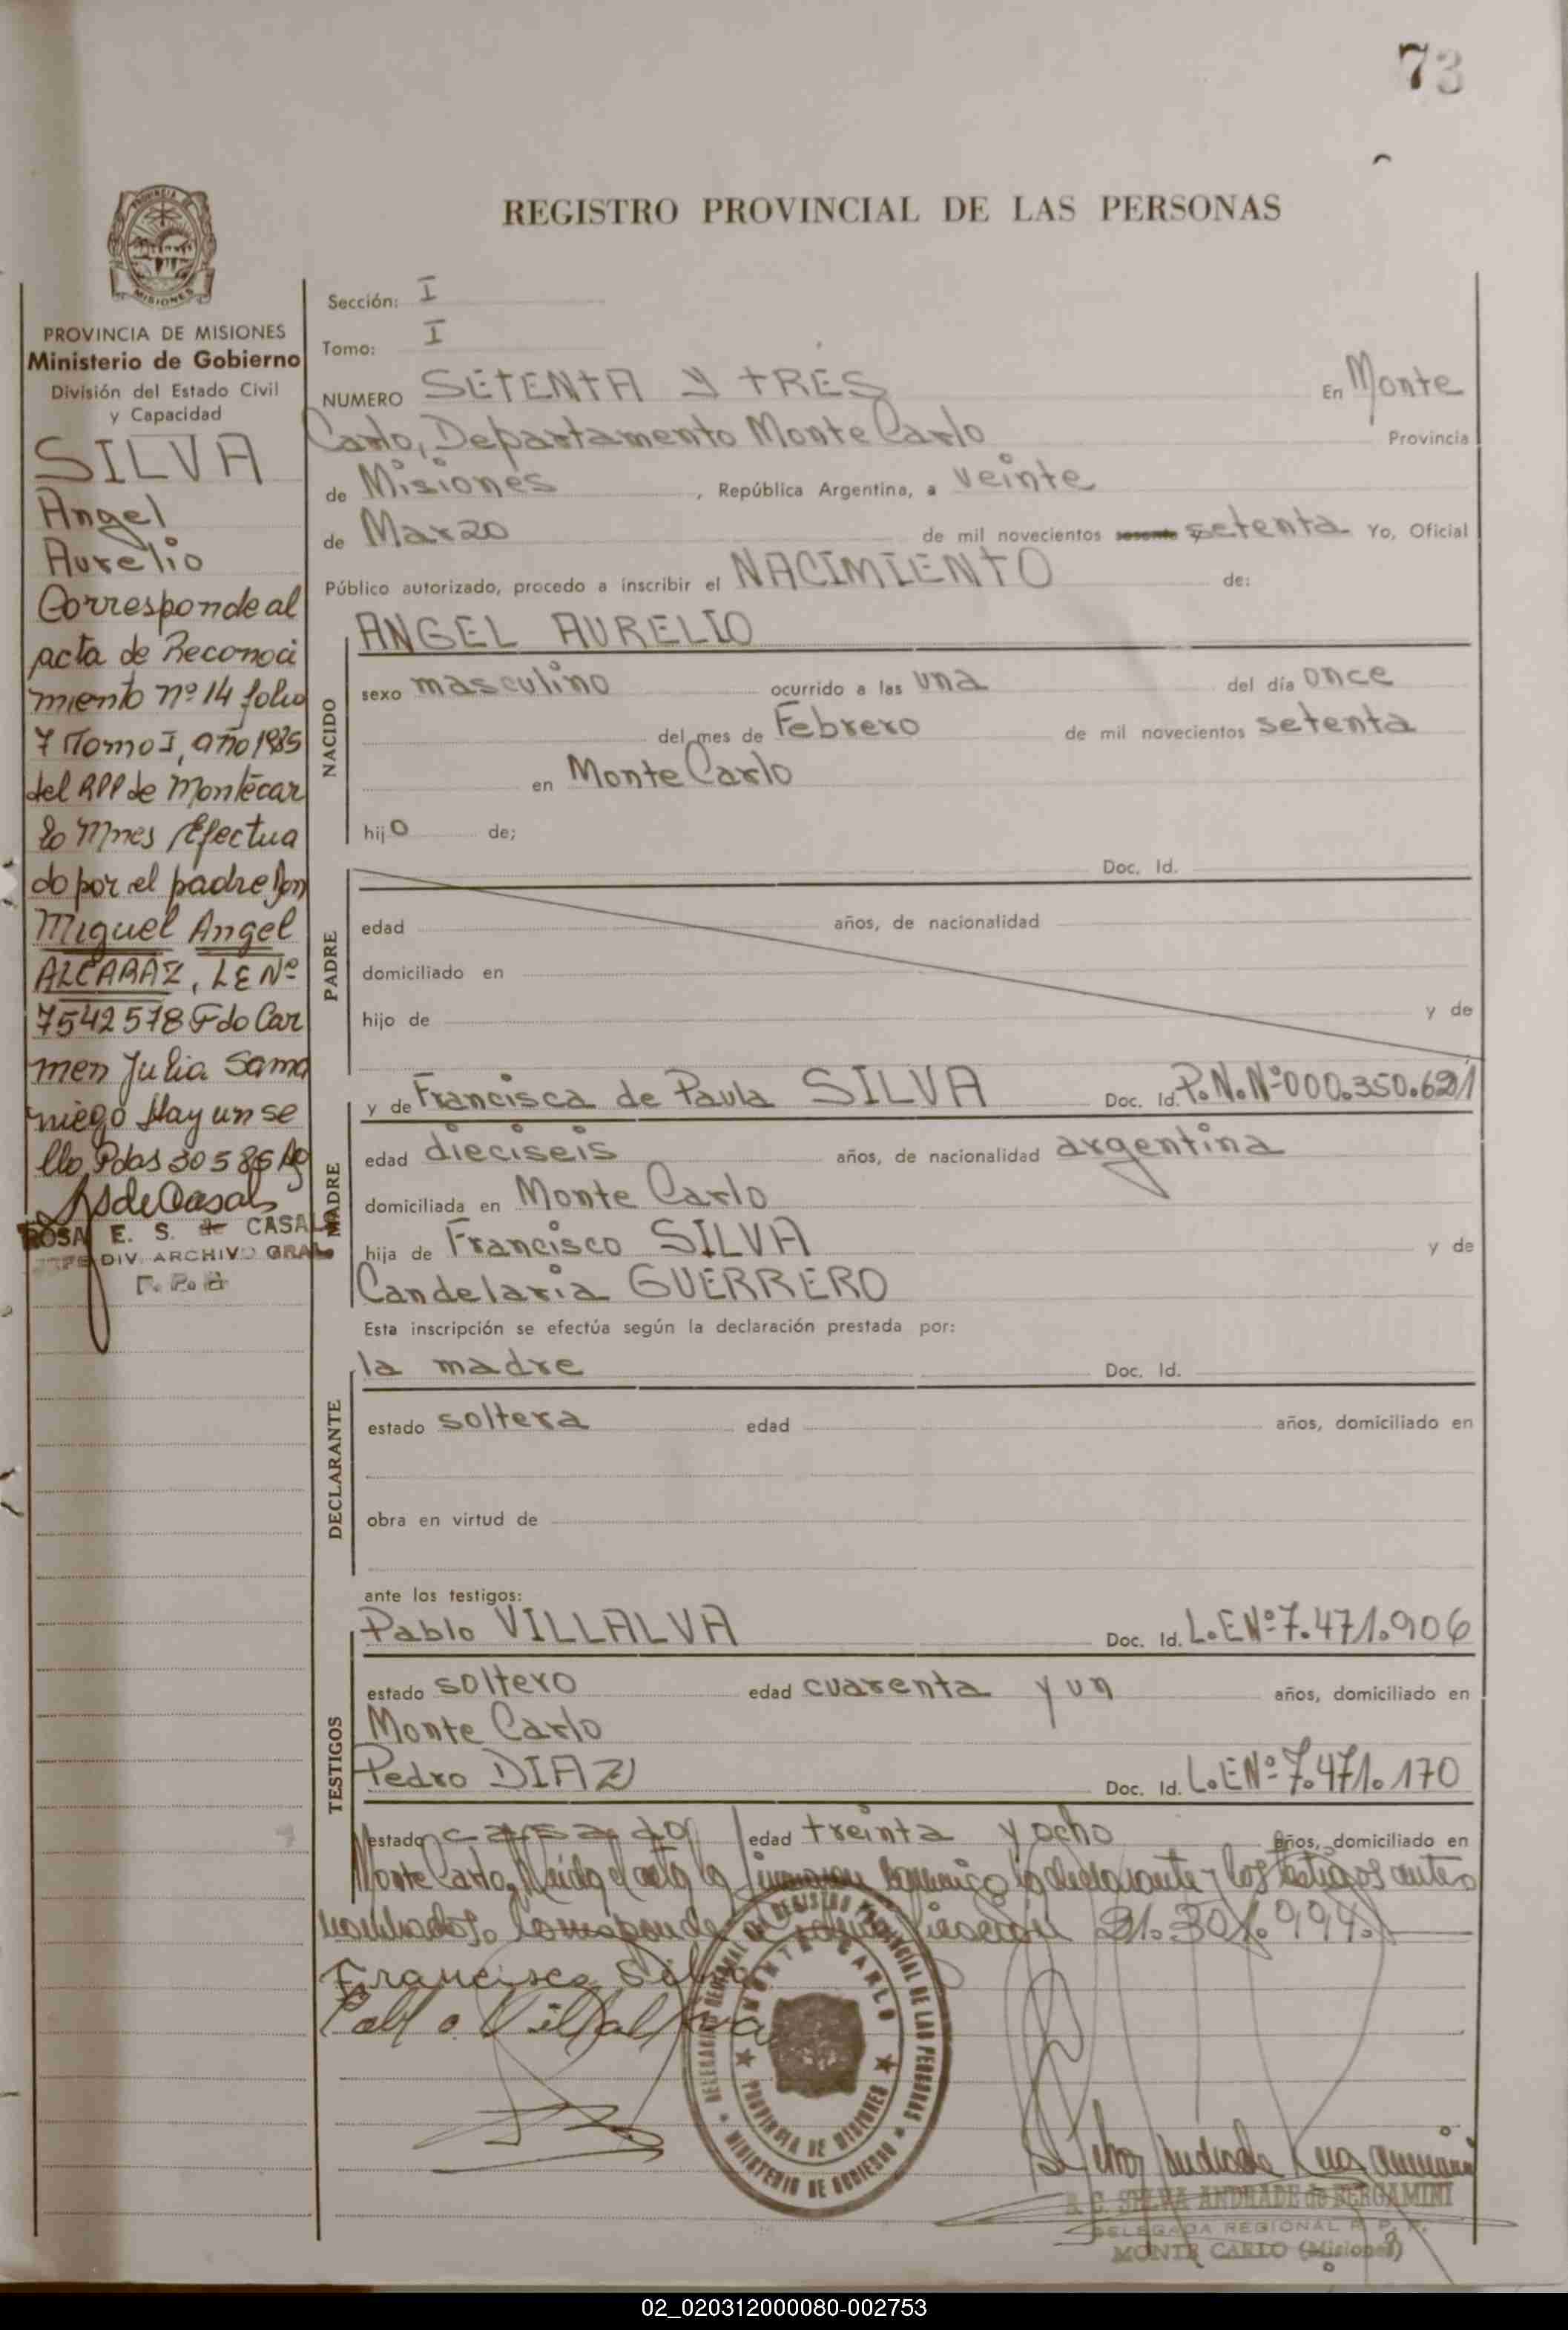 73
REGISTRO PROVINCIAL DE LAS PERSONAS
MISIONES
PROVINCIA DE MISIONES
Ministerio de Gobierno
División del Estado Civil
y Capacidad
SILVA
Angel
Aurelio
Corresponde al
acta de Reconoci
miento nº 14 folio
7 Tomo I, año 1985
del RPP de Montecar
lo Mnes Efectua
do por el padre Don
Miguel Angel
ALCARAZ, LE Nº
7542578 Fdo Car
men Julia Sama
niego Hay un se
llo Pdas 30 5 86
ROSA E. S. de CASALS
JEFE DIV. ARCHIVO GRAL
Sección: I
Tomo: I
NUMERO SETENTA Y TRES En Monte
Carlo, Departamento Monte Carlo Provincia
de Misiones , República Argentina, a veinte
de Marzo de mil novecientos sesenta setenta Yo, Oficial
Público autorizado, procedo a inscribir el NACIMIENTO de:
NACIDO
ANGEL AURELIO
sexo masculino ocurrido a las una del día once
del mes de Febrero de mil novecientos setenta
en Monte Carlo
hijo de;
PADRE
Doc. Id.
edad años, de nacionalidad
domiciliado en
hijo de y de
MADRE
y de Francisca de Paula SILVA Doc. Id. P.N.Nº000.350.621
edad dieciseis años, de nacionalidad argentina
domiciliada en Monte Carlo
hija de Francisco SILVA y de
Candelaria GUERRERO
Esta inscripción se efectúa según la declaración prestada por:
DECLARANTE
la madre Doc. Id.
estado soltera edad años, domiciliado en
obra en virtud de
ante los testigos:
TESTIGOS
Pablo VILLALVA Doc. Id. L.E Nº 7.471.906
estado soltero edad cuarenta y un años, domiciliado en
Monte Carlo
Pedro DIAZ Doc. Id. L.E Nº 7.471.170
estado casado edad treinta y ocho años, domiciliado en
Monte Carlo, Leída el acta la firman conmigo la declarante y los testigos antes
nombrados. Corresponde 21.301.994.
Francisca Silva
Pablo Villalva
DELEGACION REGIONAL DE REGISTRO PROVINCIAL DE LAS PERSONAS
MONTE CARLO
PROVINCIA DE MISIONES
MINISTERIO DE GOBIERNO
SILVA ANDRADE de BERGAMINI
DELEGADA REGIONAL R. P. P.
MONTE CARLO (Misiones)
02_020312000080-002753